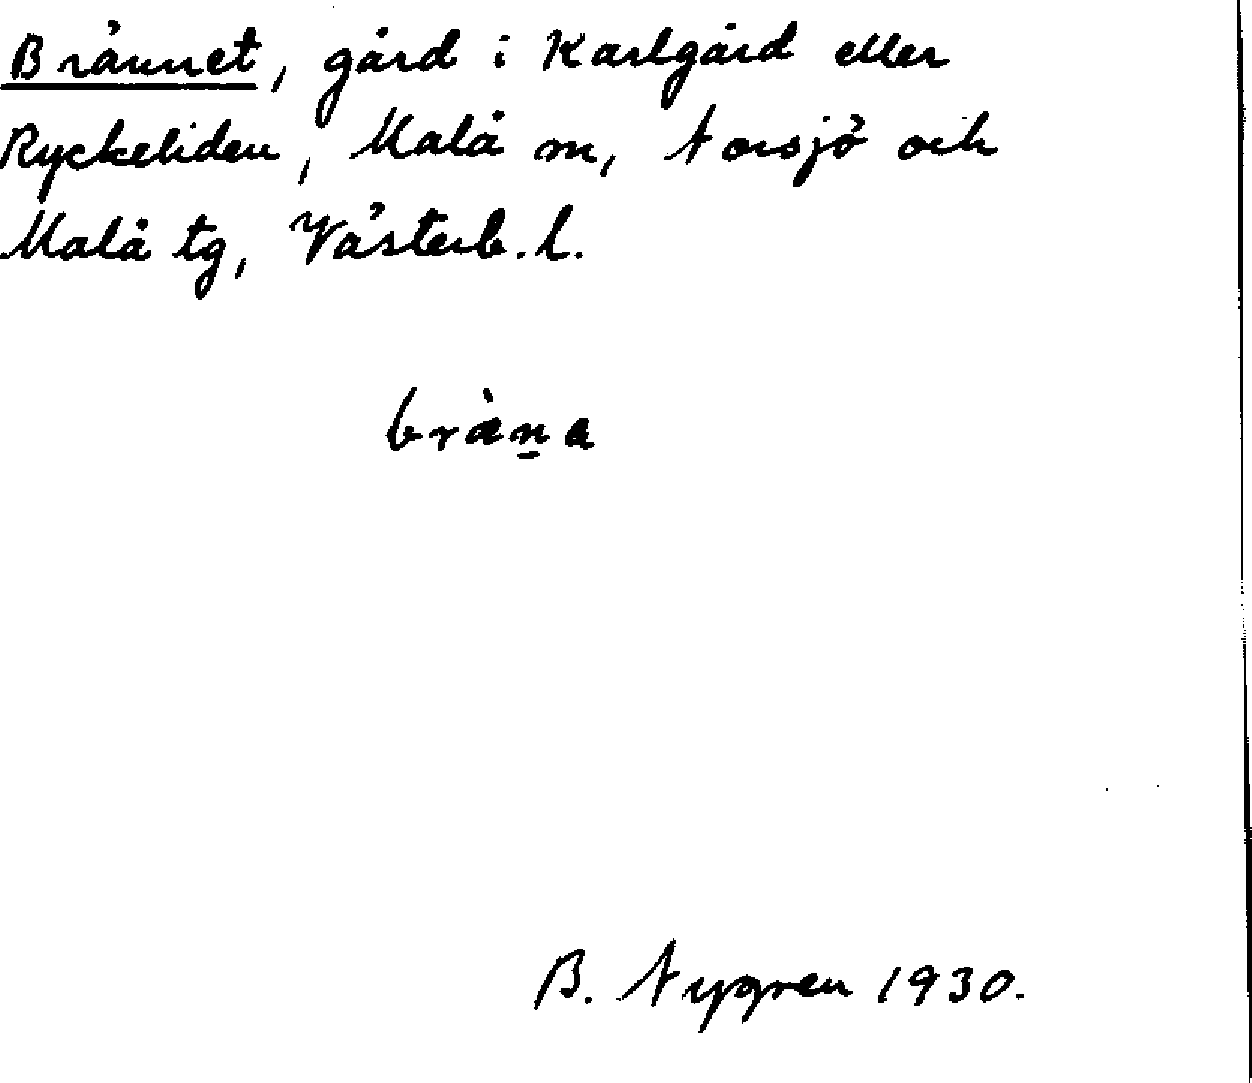 Brännet, gård i Karlgård eller
Ryckeliden, Malå m, Norsjö och
Malå tg, Västerb. l.
bràn̲a
B. Nygren 1930.